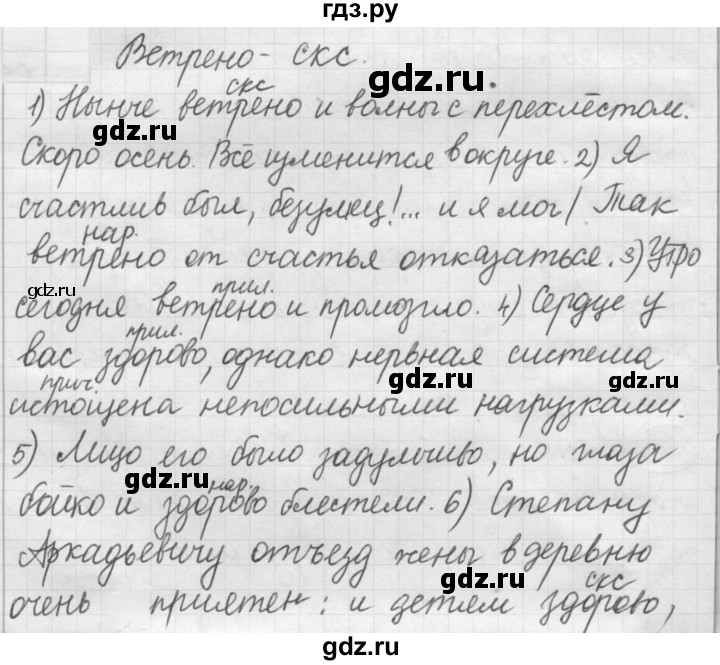 гдз.ру
Ветрено - скс.
gdz.ru
скс
1) Нынче ветрено и волны с перехлёстом.
gdz.ru
Скоро осень. Всё изменится в округе. 2) Я
счастлив был, безумец!... и я мог / Так
нар.
ветрено от счастья отказаться. 3) Утро
gdz.ru
прил.
сегодня ветрено и промозгло. 4) Сердце у
прил.
вас здорово, однако нервная система
прич.
gdz.ru
gdz.ru
истощена непосильными нагрузками.
5) Лицо его было задумчиво, но глаза
gdz.ru
нар.
бойко и здорово блестели. 6) Степану
Аркадьевичу отъезд жены в деревню
gdz.ru
скс
очень приятен: и детям здорово,
gdz.ru